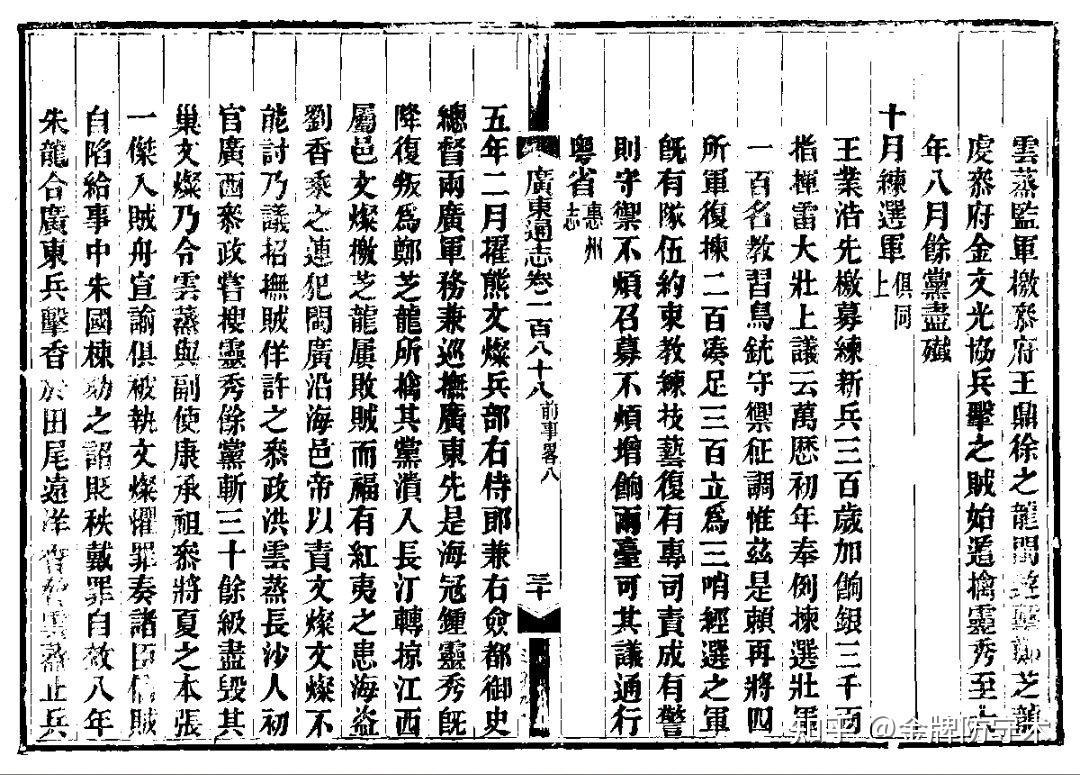 雲蒸監軍檄叅府王鼎徐之龍閩遊擊鄭芝龍
虔叅府金文光協兵擊之賊始遁擒靈秀至
年八月餘黨盡殲
十月練選軍俱同上
王業浩先檄募練新兵三百歲加餉銀三千兩
指揮雷大壯上議云萬厯初年奉例揀選壯軍
一百名教習鳥銃守禦征調惟茲是賴再將四
所軍復揀二百凑足三百立為三哨經選之軍
旣有隊伍約束教練技藝復有專司責成有警
則守禦不煩召募不煩增餉兩臺可其議通行
粵省惠州志
廣東通志卷二百八十八 前事畧八 三十
五年二月擢熊文燦兵部右侍郎兼右僉都御史
總督兩廣軍務兼巡撫廣東先是海寇鍾靈秀旣
降復叛爲鄭芝龍所擒其黨潰入長汀轉掠江西
屬邑文燦檄芝龍屢敗賊而福有紅夷之患海盜
劉香乘之連犯閩廣沿海邑帝以責文燦文燦不
能討乃議招撫賊佯許之叅政洪雲蒸長沙人初
官廣西叅政嘗搜靈秀餘黨斬三十餘級盡毀其
巢文燦乃令雲蒸與副使康承祖叅將夏之本張
一傑入賊舟宣諭俱被執文燦懼罪奏諸臣信賊
自陷給事中朱國棟劾之詔貶秩戴罪自效八年
朱龍合廣東兵擊香於田尾遠洋香脅雲蒸止兵
知乎 @金牌防守木